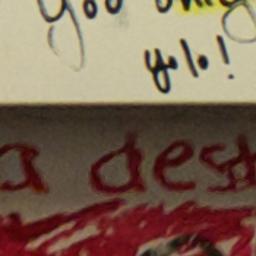 you only
yolo!
a des